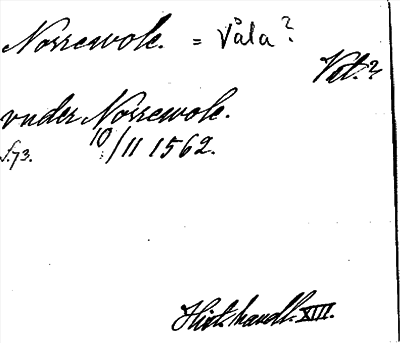 Norrewole. = Våla?
Vät.?
vnder Norrewole.
f.73. 10/11 1562.
Hist. handl. XIII.